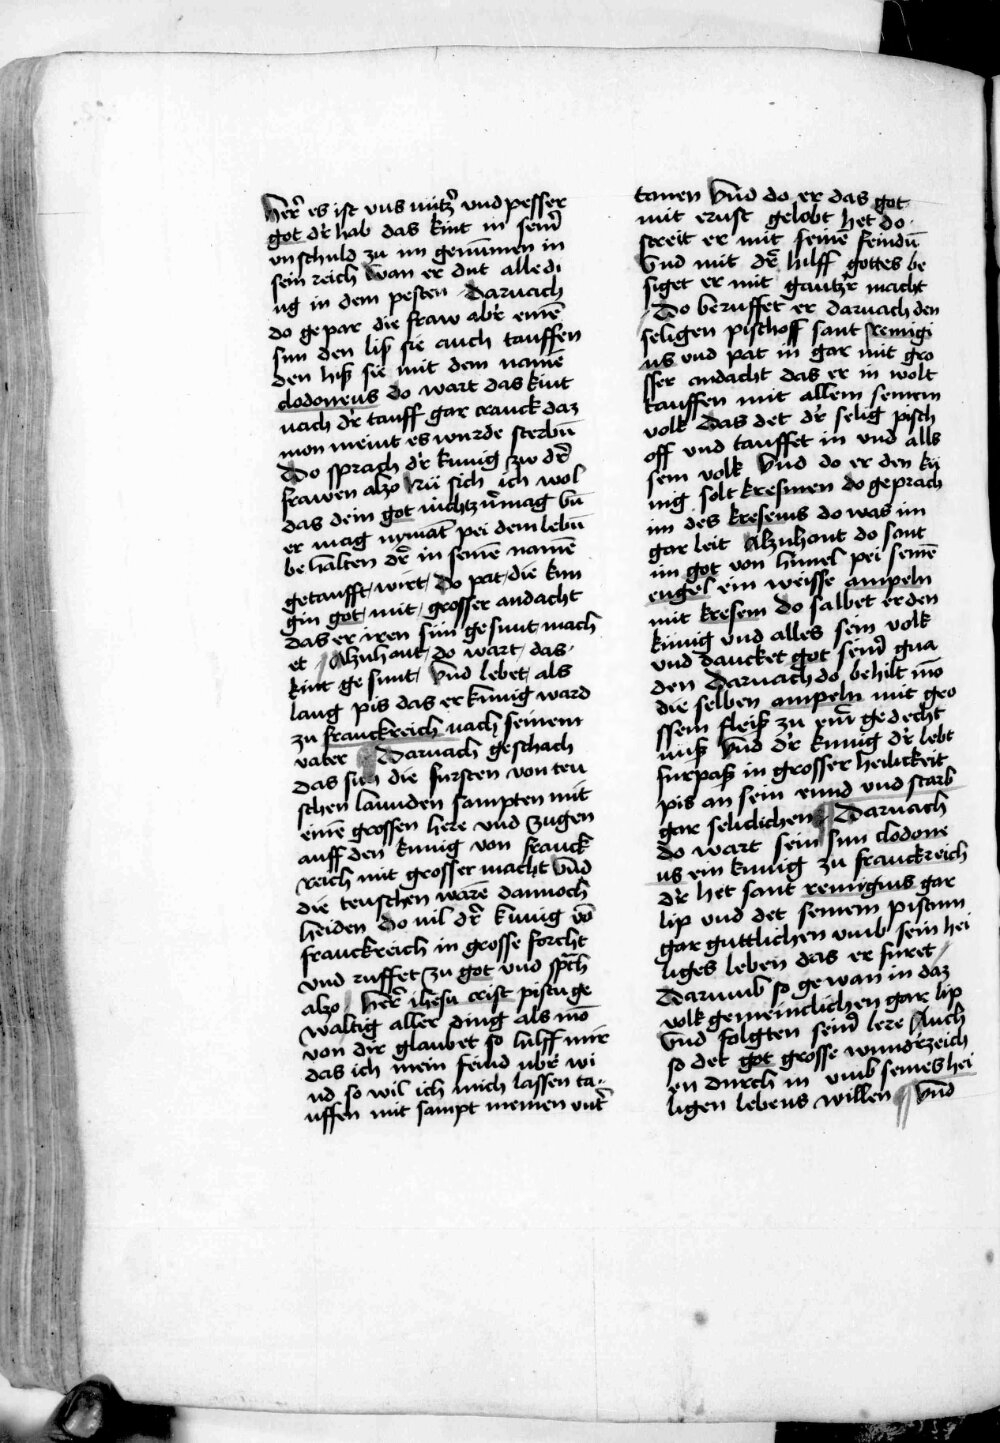 her̃ es ist vns nütz̃ vnd pesser
got dr̃ hab das kint in sein̄
vnschuld zu im genummen in
sein reich wan er dut alle di
ng in dem pesten Darnach
do gepar die fraw abr̃ einē
sun den liß sie auch tauffen
den hiß sie mit dem namē
clodoneus do wart das kint
nach dr̃ tauff gar cranck daz
mon meint es wurde sterbn̄
Do sprach dr̃ kunig zw dr̃
frawen alzo Nü sich ich wol
das dein got nichtz v̄mag vn̄
er mag nymāt pei dem lebn̄
behalten dr̃ in seinē namē
getaufft wirt do pat die kun
gin got mit grosser andacht
das er iren sün gesunt mach
et Alzuhant do wart das
kint gesunt vnd lebet als
lang pis das er kunig ward
zu franckreich nach seinem
vater Darnach geschach
das sich die fursten von teu
schen lannden sampten mit
einē grossen here vnd zugen
auff den kunig von franck
reich mit grosser macht vnd
die teuschen warē dannoch
heiden Do vil dr̃ kunig vō
franckreich in grosse forcht
vnd ruffet zu got vnd sp̄ch
alzo her̃ ihesu crist pistu ge
waltig aller ding als mō
von dir glaubet so hilff mir
das ich mein feind vbr̃ wi
nd so wil ich mich lassen ta
uffen mit sampt meinen vntr̃
tanen vnd do er das got
mit ernst gelobt het do
streit er mit seinē feindn̄
vnd mit dr̃ hilff gottes be
siget er mit gantzr̃ macht
Do beruffet er darnach den
seligen pischoff sant remigi
us vnd pat in gar mit gro
sser andacht das er in wolt
tauffen mit allem seinem
volk Das det dr̃ selig pisch
off vnd tauffet in vnd alls
sein volk vnd do er den kü
nig solt kresmen do geprach
im des kresems do was im
gar leit Alzuhant do sant
im got von himel pei seinē
engel ein weisse ampeln
mit kresem do salbet er den
künig vnd alles sein volk
vnd dancket got sein̄ gna
den Darnach do behilt mō
die selben ampeln mit gro
ssem fleiß zu ein̄ gedecht
nuß vnd dr̃ kunig dr̃ lebt
furpaß in grosser heilickeit
pis an sein ennd vnd starb
gar seliclichen Darnach
do wart sein sun clodone
us ein kunig zu franckreich
dr̃ het sant remigius gar
lip vnd det seinem pistum
gar guttlichen vmb sein hei
liges leben das er furet
Darumb so gewan in daz
volk gemeinclichen gar lip
vnd folgten sein̄ lere Auch
so det got grosse wundr̃zeich
en durch in vmb seines hei
ligen lebens willen vnd